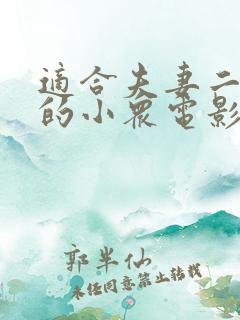 適合夫妻二
的小眾電影
郭半仙
未经同意禁止转载